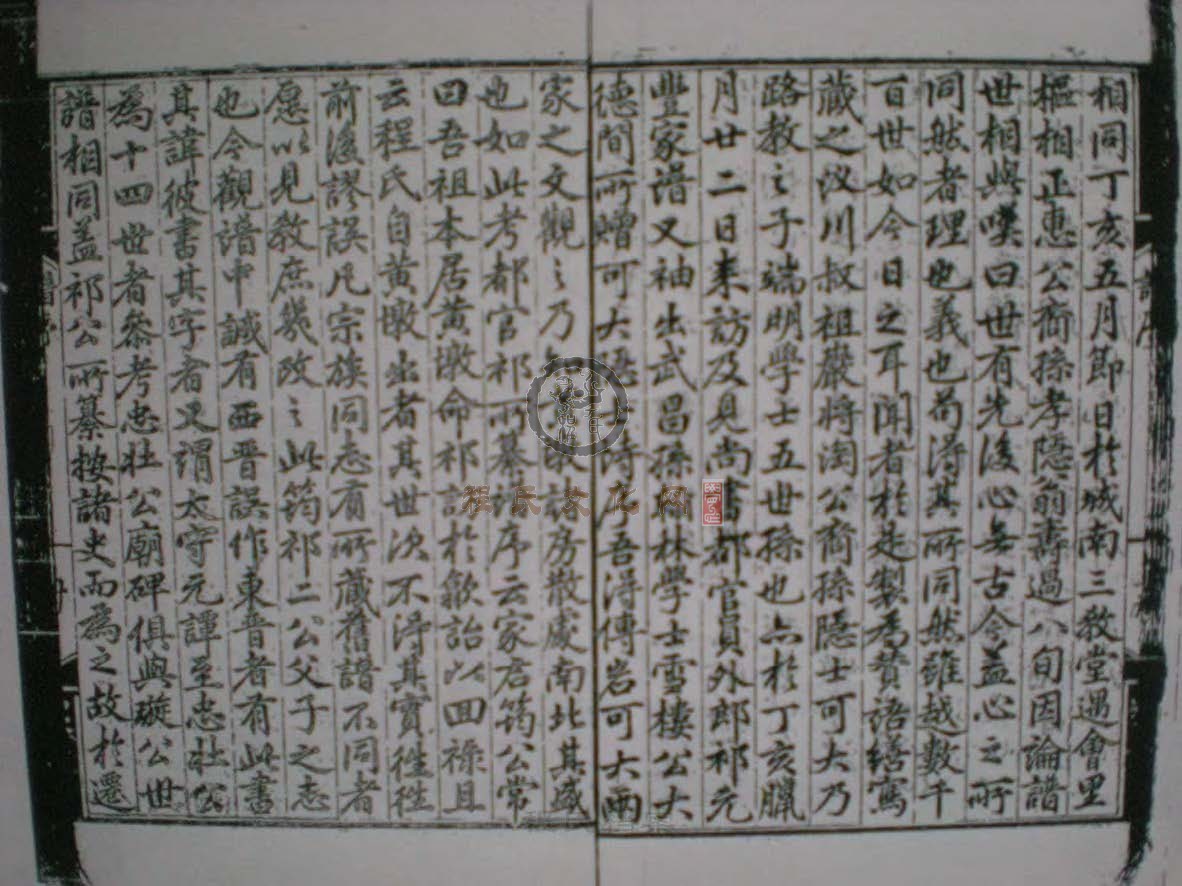 相同丁亥五月節日於城南三教堂遇會里
樞相正惠公裔孫孝隱翁壽過八旬因論譜
世相與嘆曰世有先後心無古今蓋心之所
同然者理也義也苟得其所同然雖越數千
百世如今日之耳聞者於是製為贊語繕寫
藏之汊川叔祖嚴將淘公裔孫隱士可大乃
路教之子端明學士五世孫也亦於丁亥臘
月廿二日来訪及見尚書都官員外郎祁元
豐家譜又袖出武昌孫翰林學士雪樓公大
德間所贈可大隱士詩序吾得傳岩可大兩
家之文觀之乃知歙諸房散處南北其盛
也如此考都官祁所纂譜序云家君筠公常
曰吾祖本居黃墩命祁訪於歙詒以回祿且
云程氏自黃墩出者其世次不得其實徃徃
前後謬誤凡宗族同志有所藏舊譜不同者
愿以見教庶幾改之此筠祁二公父子之志
也今觀譜中誠有西晋誤作東晋者有此書
其諱彼書其字者又謂太守元譚至忠壯公
為十四世者參考忠壯公廟碑俱與璇公世
譜相同盖祁公所纂按諸史而為之故於遷
程氏文化网